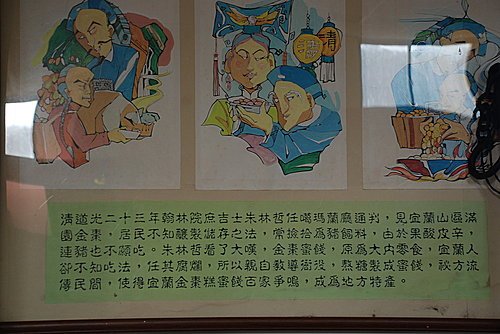 清
清道光二十三年翰林院庶吉士朱林哲任噶瑪蘭廳通判，見宜蘭山區滿
園金棗，居民不知醃製儲存之法，常撿拾為豬飼料，由於果酸皮辛，
連豬也不願吃。朱林哲看了大嘆，金棗蜜餞，原為大內零食，宜蘭人
卻不知吃法，任其腐爛，所以親自教導衙役，熬糖製成蜜餞，祕方流
傳民間，使得宜蘭金棗糕蜜餞百家爭鳴，成為地方特產。